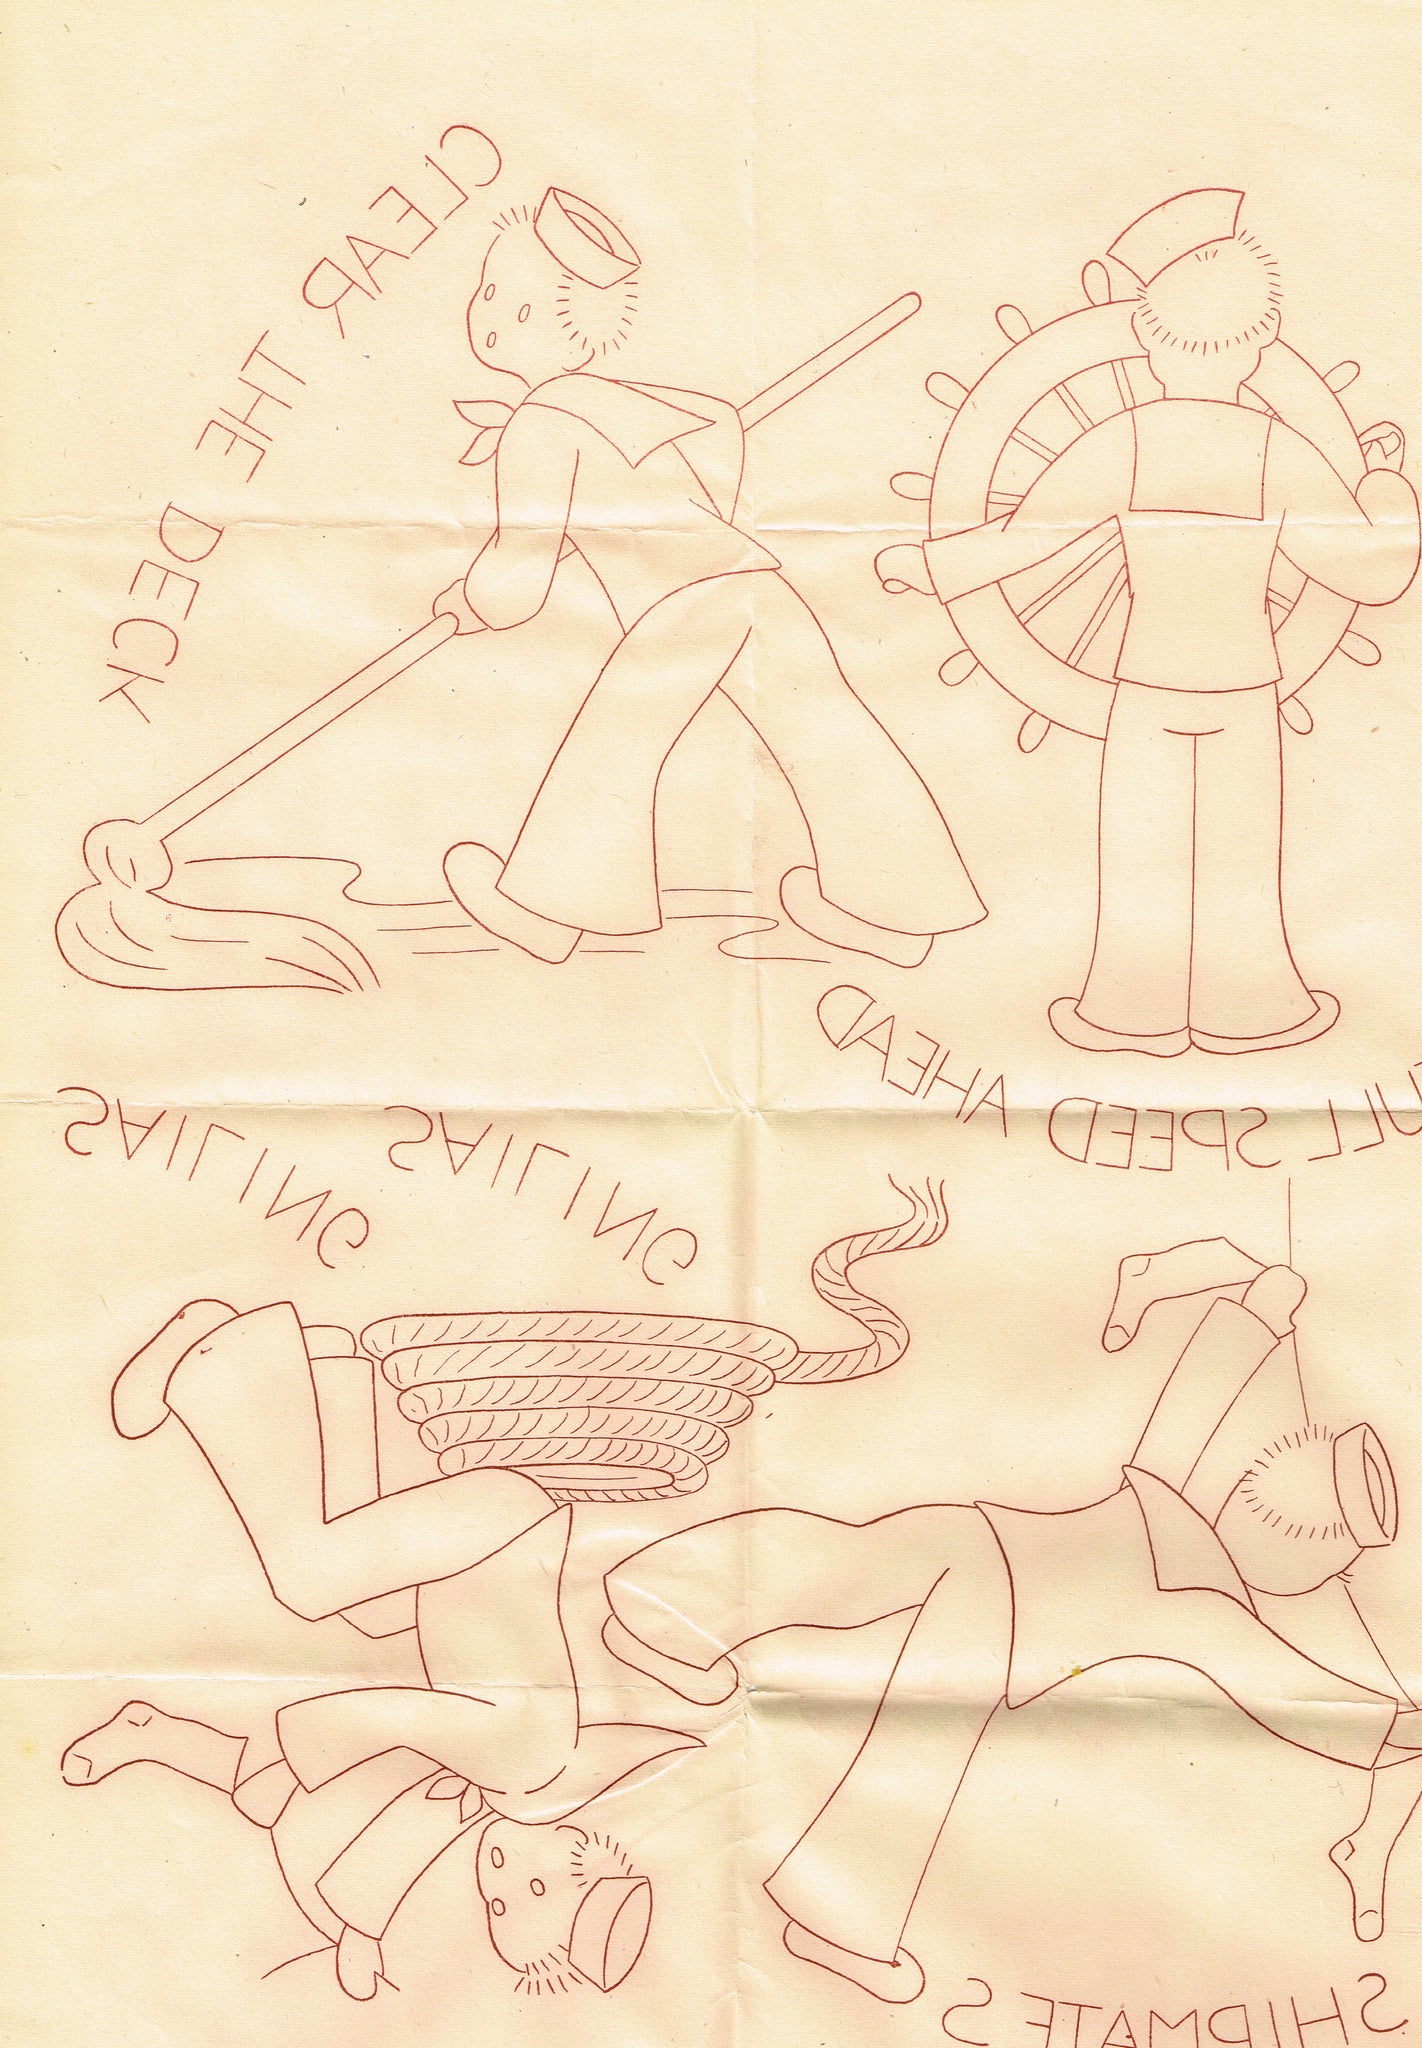 CLEAR THE DECK
FULL SPEED AHEAD
SAILING SAILING
SHIPMATES